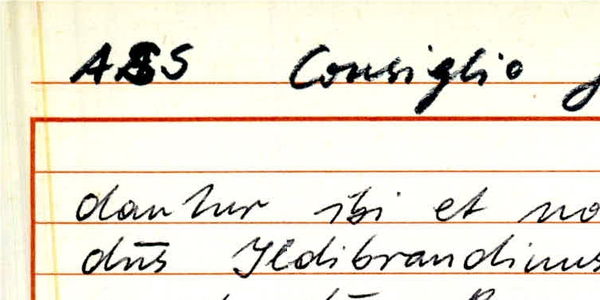 ASS Consiglio
dantur ibi et no
dn̄s Ildibrandinus